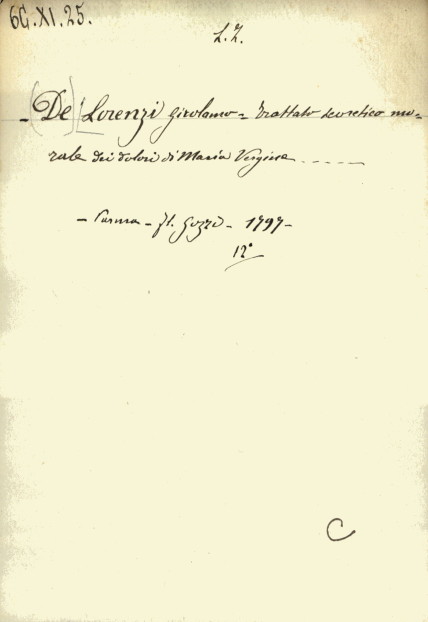 6G.XI.25.
L.Z.
- (De) [Lorenzi Girolamo = Trattato teoretico mo-
rale dei dolori di Maria Vergine - - - - -
- Parma - fl. Gozzi - 1797 -
12°
C